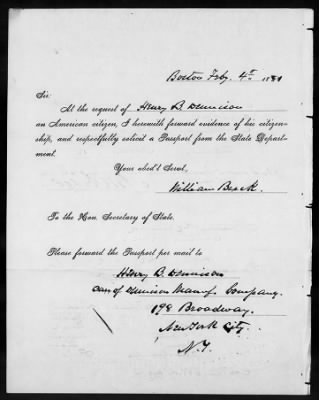 Boston Feby. 4th 1880
Sir:
At the request of Henry B. Dennison
an American citizen, I herewith forward evidence of his citizen-
ship, and respectfully solicit a Passport from the State Depart-
ment.
Your obed't Servt,
William
To the Hon. Secretary of State.
Please forward the Passport per mail to
Henry B. Dennison
care of Dennison Manufg. Company.
198 Broadway.
New York City.
N.Y.